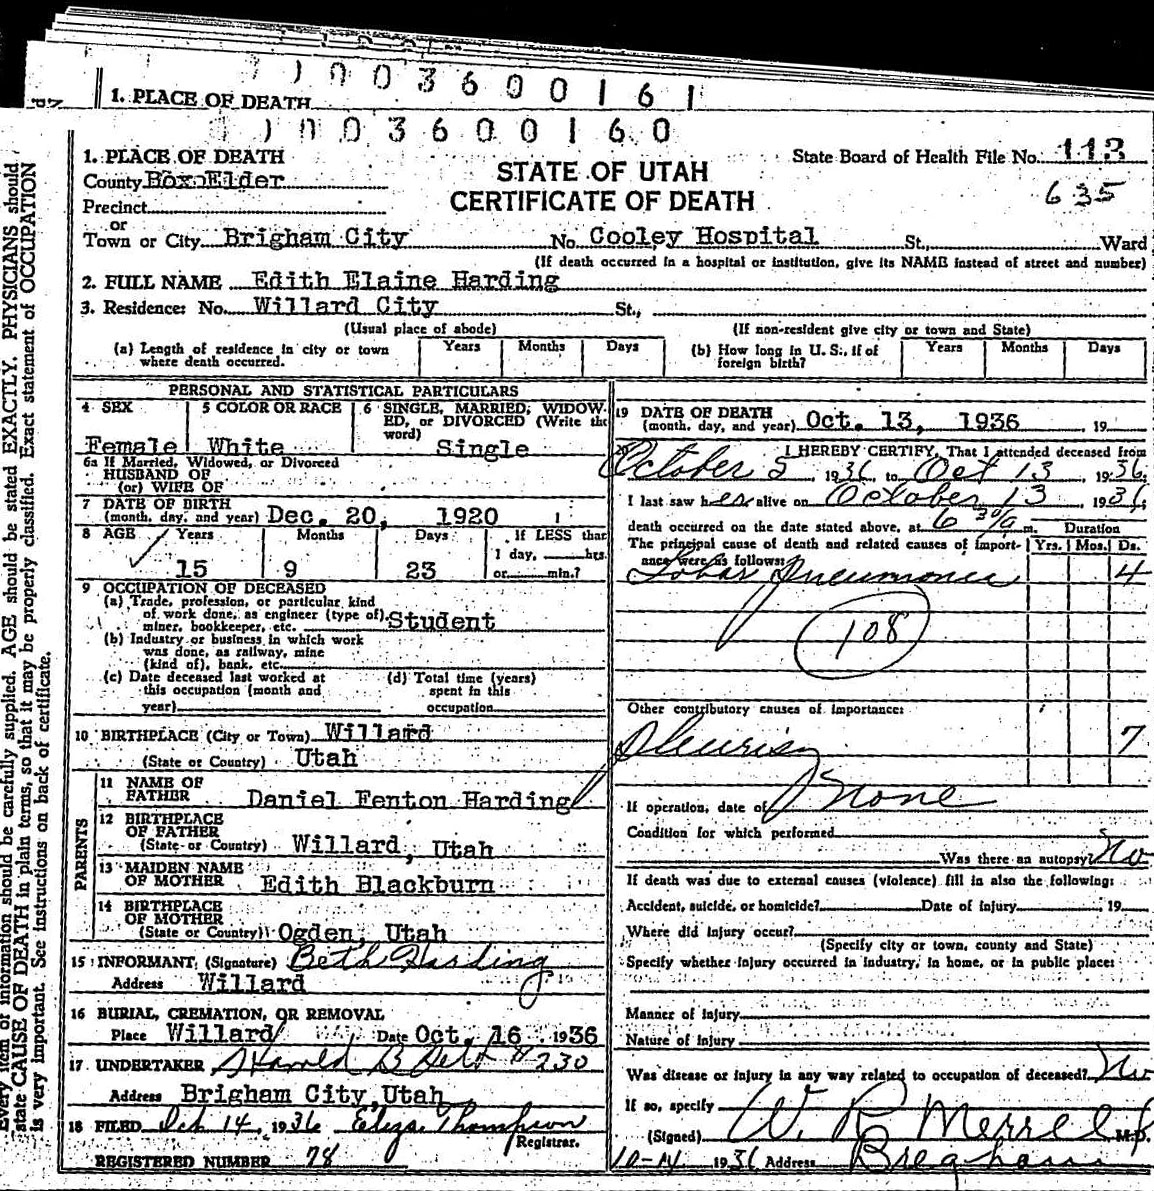 0 0 3 6 0 0 1 6 1
1. PLACE OF DEATH
0 0 3 6 0 0 1 6 0
1. PLACE OF DEATH
County Box Elder
Precinct
or
Town or City Brigham City No. Cooley Hospital St., Ward
STATE OF UTAH
CERTIFICATE OF DEATH
State Board of Health File No. 113
635
(If death occurred in a hospital or institution, give its NAME instead of street and number)
2. FULL NAME Edith Elaine Harding
3. Residence: No. Willard City St.,
(Usual place of abode) (If non-resident give city or town and State)
(a) Length of residence in city or town where death occurred. Years Months Days
(b) How long in U. S., if of foreign birth? Years Months Days
PERSONAL AND STATISTICAL PARTICULARS
4 SEX Female
5 COLOR OR RACE White
6 SINGLE, MARRIED, WIDOWED, or DIVORCED (Write the word) Single
6a If Married, Widowed, or Divorced
HUSBAND OF
(or) WIFE OF
7 DATE OF BIRTH
(month, day, and year) Dec. 20, 1920
8 AGE Years Months Days If LESS than
1 day, hrs.
15 9 23 or min.?
9 OCCUPATION OF DECEASED
(a) Trade, profession, or particular kind
of work done, as engineer (type of),
miner, bookkeeper, etc. Student
(b) Industry or business in which work
was done, as railway, mine
(kind of), bank, etc.
(c) Date deceased last worked at
this occupation (month and
year)
(d) Total time (years)
spent in this
occupation
10 BIRTHPLACE (City or Town) Willard
(State or Country) Utah
PARENTS
11 NAME OF
FATHER Daniel Fenton Harding
12 BIRTHPLACE
OF FATHER
(State or Country) Willard, Utah
13 MAIDEN NAME
OF MOTHER Edith Blackburn
14 BIRTHPLACE
OF MOTHER
(State or Country) Ogden, Utah
15 INFORMANT (Signature) Beth Harding
Address Willard
16 BURIAL, CREMATION, OR REMOVAL
Place Willard Date Oct. 16 1936
17 UNDERTAKER Harold B # 230
Address Brigham City, Utah
18 FILED Oct 14, 1936 Eliza Thompson
Registrar.
REGISTERED NUMBER 78
19 DATE OF DEATH
(month, day, and year) Oct. 13, 1936 , 19
I HEREBY CERTIFY, That I attended deceased from
October 5 1936, to Oct 13, 1936.
I last saw her alive on October 13, 1936,
death occurred on the date stated above, at 6 30/a m. Duration
The principal cause of death and related causes of importance were as follows: Yrs. Mos. Ds.
Lobar Pneumonia 4
108
Other contributory causes of importance:
Pleurisy 7
If operation, date of None
Condition for which performed
Was there an autopsy? No
If death was due to external causes (violence) fill in also the following:
Accident, suicide, or homicide? Date of injury , 19
Where did injury occur?
(Specify city or town, county and State)
Specify whether injury occurred in industry, in home, or in public place:
Manner of injury
Nature of injury
Was disease or injury in any way related to occupation of deceased? No
If so, specify
(Signed) W. R. Merrell M.D.
10-14 1936 Address Brigham
Every item of information should be carefully supplied. AGE should be stated EXACTLY. PHYSICIANS should
state CAUSE OF DEATH in plain terms, so that it may be properly classified. Exact statement of OCCUPATION
is very important. See instructions on back of certificate.